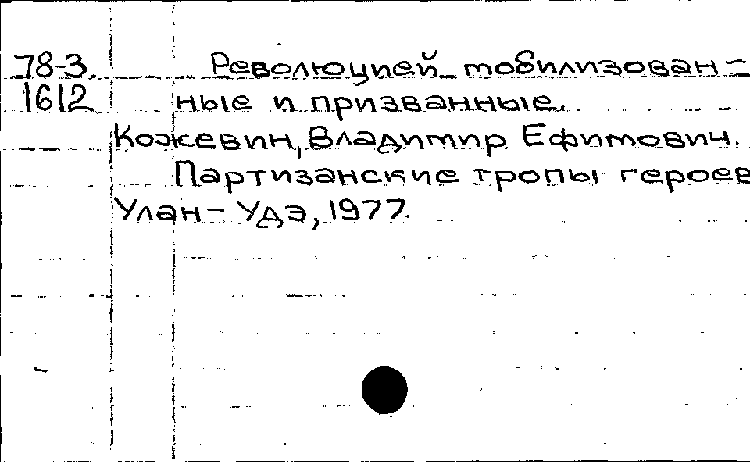 78-3. Революцией мобилизован-
1612 ные и призванные.
Кожевин, Владимир Ефимович.
Партизанские тропы героев
Улан-Удэ, 1977.